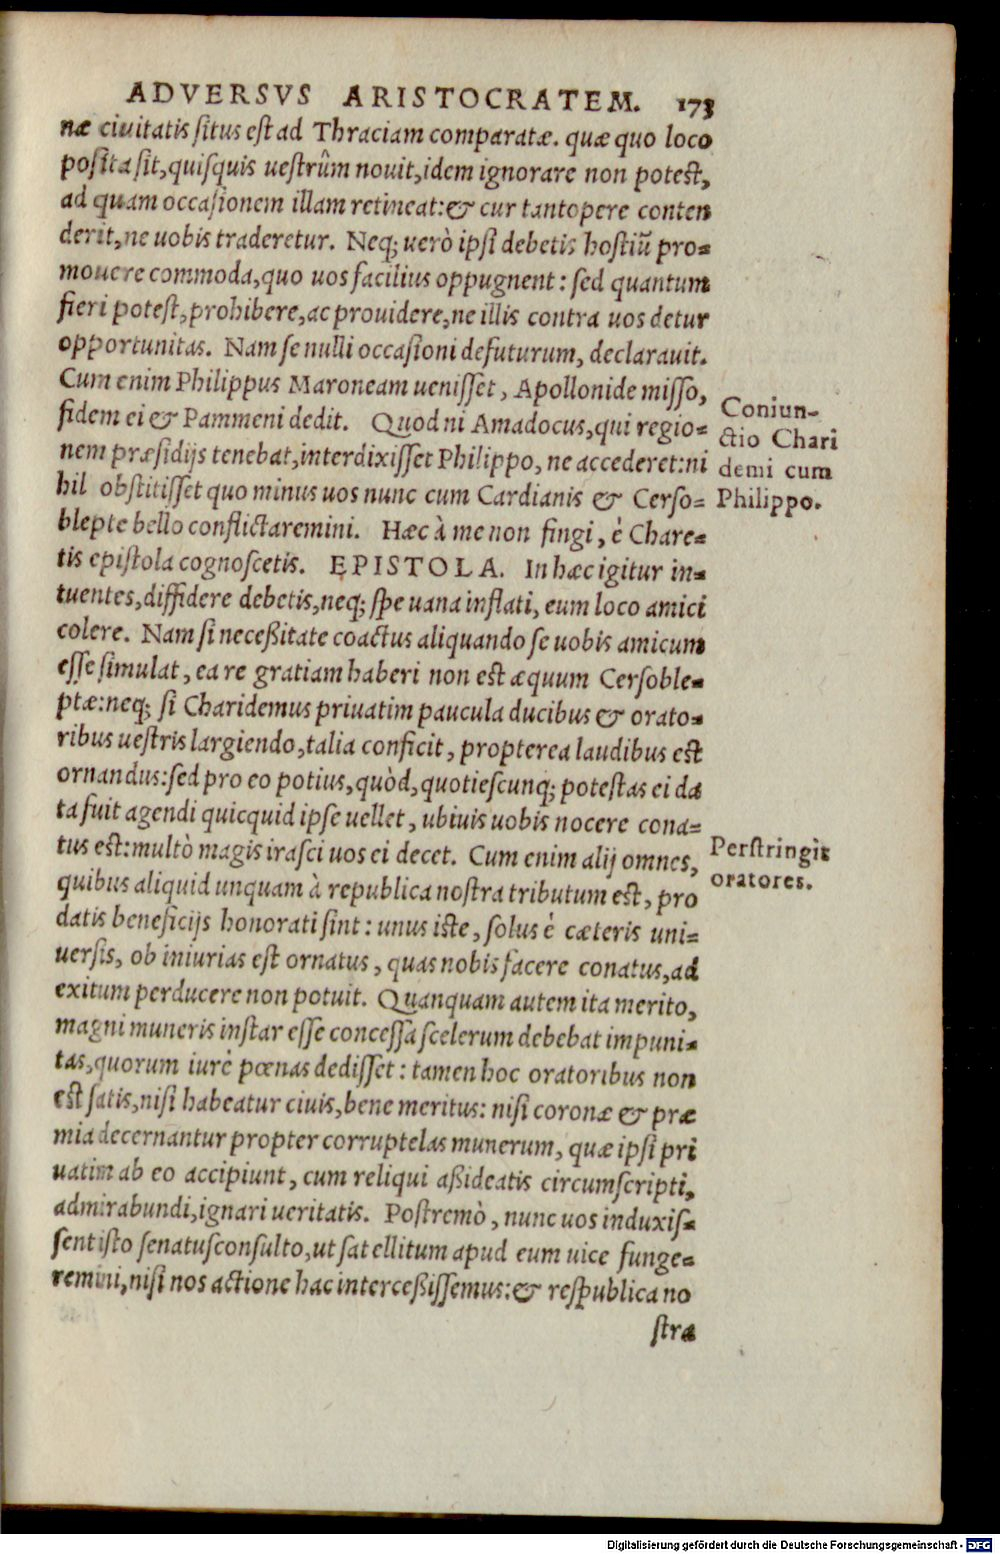 ADVERSVS ARISTOCRATEM. 173
næ ciuitatis ſitus eſt ad Thraciam comparatæ. quæ quo loco
poſita ſit, quiſquis ueſtrûm nouit, idem ignorare non poteſt,
ad quam occaſionem illam retineat: & cur tantopere conten
derit, ne uobis traderetur. Neq; uerò ipſi debetis hoſtiũ pro=
mouere commoda, quo uos facilius oppugnent: ſed quantum
fieri poteſt, prohibere, ac prouidere, ne illis contra uos detur
opportunitas. Nam ſe nulli occaſioni defuturum, declarauit.
Cum enim Philippus Maroneam ueniſſet, Apollonide miſſo,
fidem ei & Pammeni dedit. Quod ni Amadocus, qui regio=
nem præſidijs tenebat, interdixiſſet Philippo, ne accederet: ni
hil obſtitiſſet quo minus uos nunc cum Cardianis & Cerſo=
blepte bello conflictaremini. Hæc à me non fingi, è Chare=
tis epiſtola cognoſcetis. EPISTOLA. In hæc igitur in=
tuentes, diffidere debetis, neq; ſpe uana inflati, eum loco amici
colere. Nam ſi neceßitate coactus aliquando ſe uobis amicum
eſſe ſimulat, ea re gratiam haberi non est æquum Cerſoble=
ptæ: neq; ſi Charidemus priuatim paucula ducibus & orato=
ribus ueſtris largiendo, talia conficit, propterea laudibus est
ornandus: ſed pro eo potius, quòd, quotieſcunq; poteſtas ei da
ta fuit agendi quicquid ipſe uellet, ubiuis uobis nocere cona=
tus est: multò magis iraſci uos ei decet. Cum enim alij omnes,
quibus aliquid unquam à republica noſtra tributum est, pro
datis beneficijs honorati ſint: unus iſte, ſolus è cæteris uni=
uerſis, ob iniurias eſt ornatus, quas nobis facere conatus, ad
exitum perducere non potuit. Quanquam autem ita merito,
magni muneris inſtar eſſe conceſſa ſcelerum debebat impuni=
tas, quorum iurè pœnas dediſſet: tamen hoc oratoribus non
eſt ſatis, niſi habeatur ciuis, bene meritus: niſi coronæ & præ
mia decernantur propter corruptelas munerum, quæ ipſi pri
uatim ab eo accipiunt, cum reliqui aßideatis circumſcripti,
admirabundi, ignari ueritatis. Poſtremò, nunc uos induxiſ=
ſent iſto ſenatuſconſulto, ut ſatellitum apud eum uice funge=
remini, niſi nos actione hac interceßiſſemus: & reſpublica no
ſtra
Coniun-
ctio Chari
demi cum
Philippo.
Perſtringit
oratores.
Digitalisierung gefördert durch die Deutsche Forschungsgemeinschaft - DFG